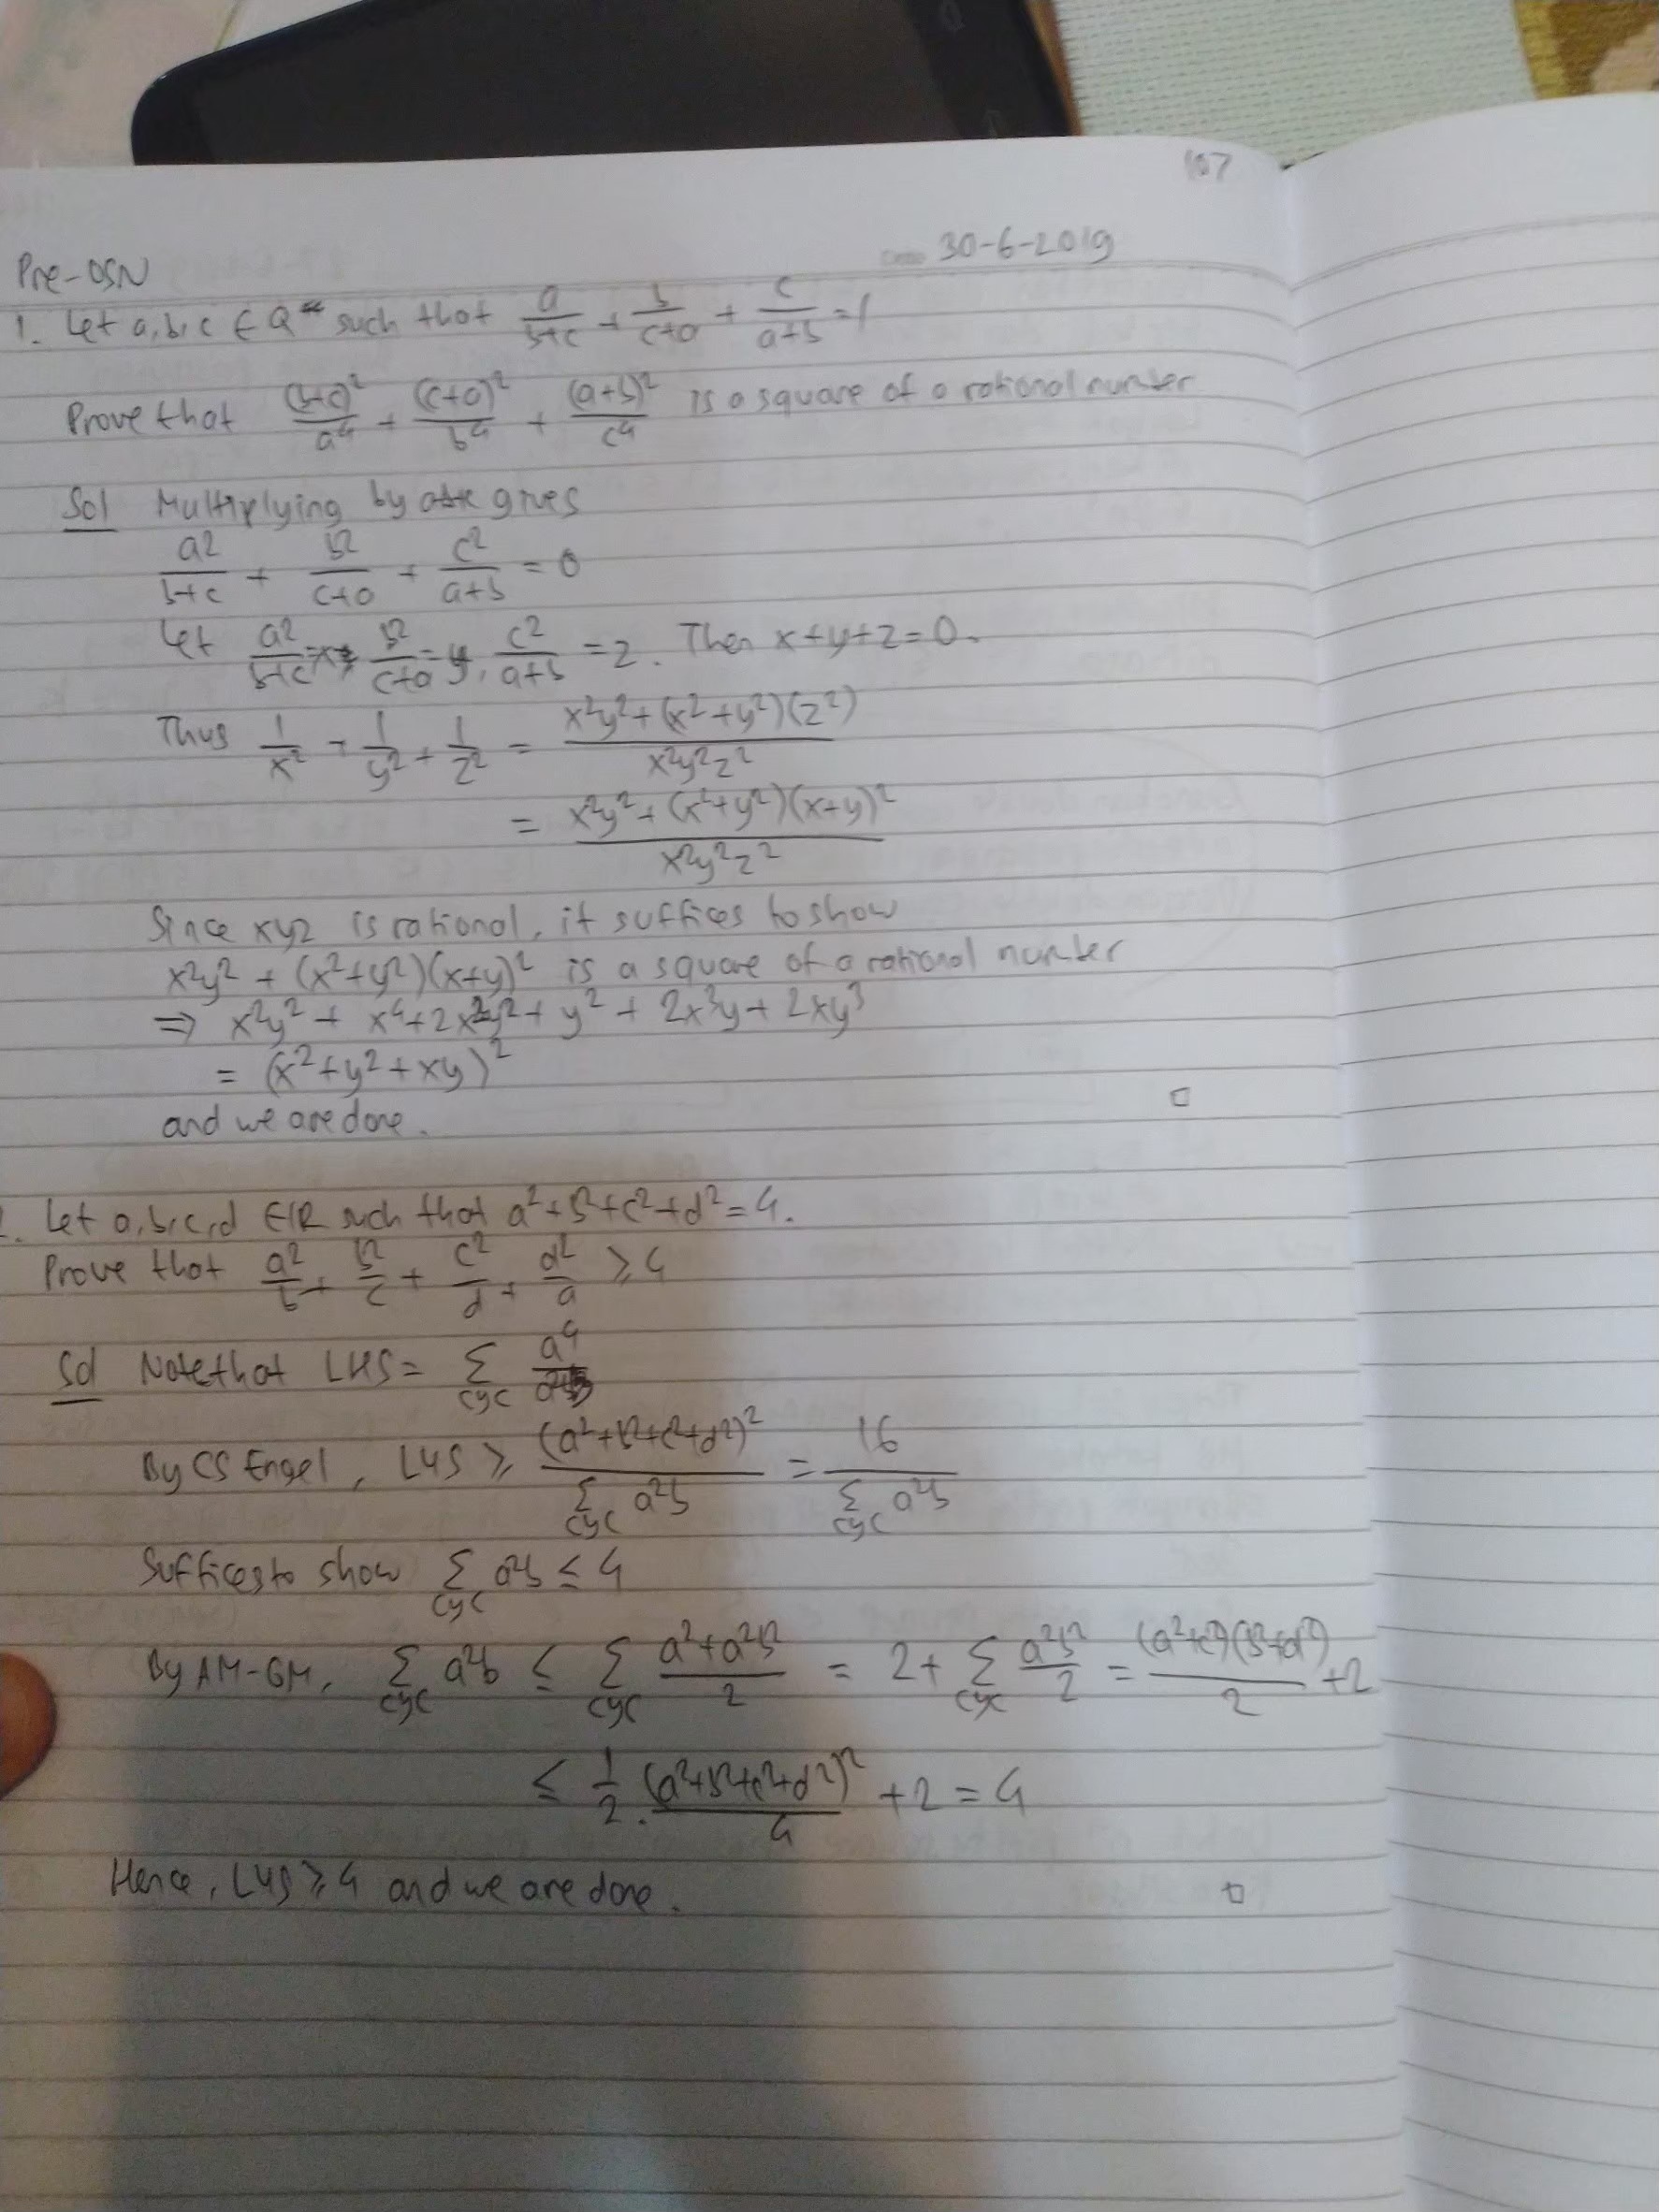 107
30-6-2019
Pre-OSN
1. Let a,b,c ∈ Q such that a/(b+c) + b/(c+a) + c/(a+b) = 1
Prove that (b+c)²/a⁴ + (c+a)²/b⁴ + (a+b)²/c⁴ is a square of a rational number
Sol Multiplying by gives
a²/(b+c) + b²/(c+a) + c²/(a+b) = 0
Let a²/(b+c) = x, b²/(c+a) = y, c²/(a+b) = z. Then x+y+z=0.
Thus 1/x² + 1/y² + 1/z² = (x²y²+(x²+y²)(z²))/(x²y²z²)
= (x²y²+(x²+y²)(x+y)²)/(x²y²z²)
Since xyz is rational, it suffices to show
x²y² + (x²+y²)(x+y)² is a square of a rational number
⇒ x²y² + x⁴+2x²y²+y² + 2x³y+2xy³
= (x²+y²+xy)²
and we are done. □
2. Let a,b,c,d ∈ ℝ such that a²+b²+c²+d²=4.
Prove that a²/b + b²/c + c²/d + d²/a ≥ 4
Sol Note that LHS = Σcyc a⁴/a²b
By CS Engel, LHS ≥ (a²+b²+c²+d²)²/(Σcyc a²b) = 16/(Σcyc a²b)
Suffices to show Σcyc a²b ≤ 4
By AM-GM, Σcyc a²b ≤ Σcyc (a²+a²b²)/2 = 2+Σcyc a²b²/2 = (a²+c²)(b²+d²)/2 +2
≤ 1/2 · (a²+b²+c²+d²)²/4 +2 = 4
Hence, LHS ≥ 4 and we are done. □